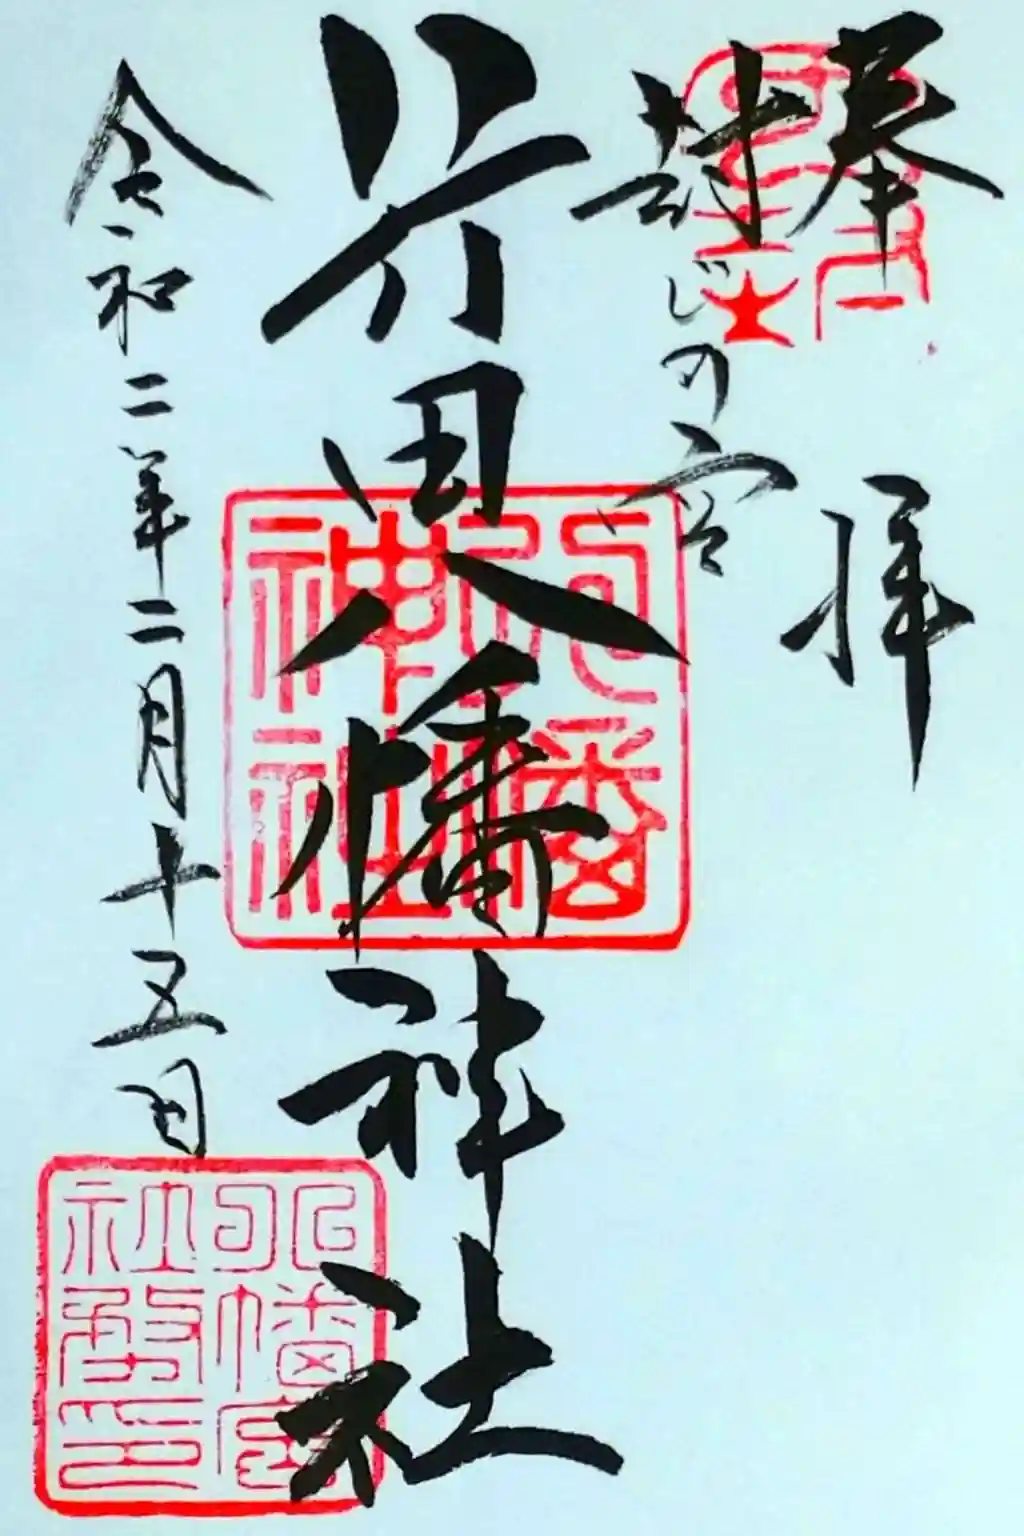 奉拝
封じの宮
行田八幡神社
令和二年二月十五日
八幡神社